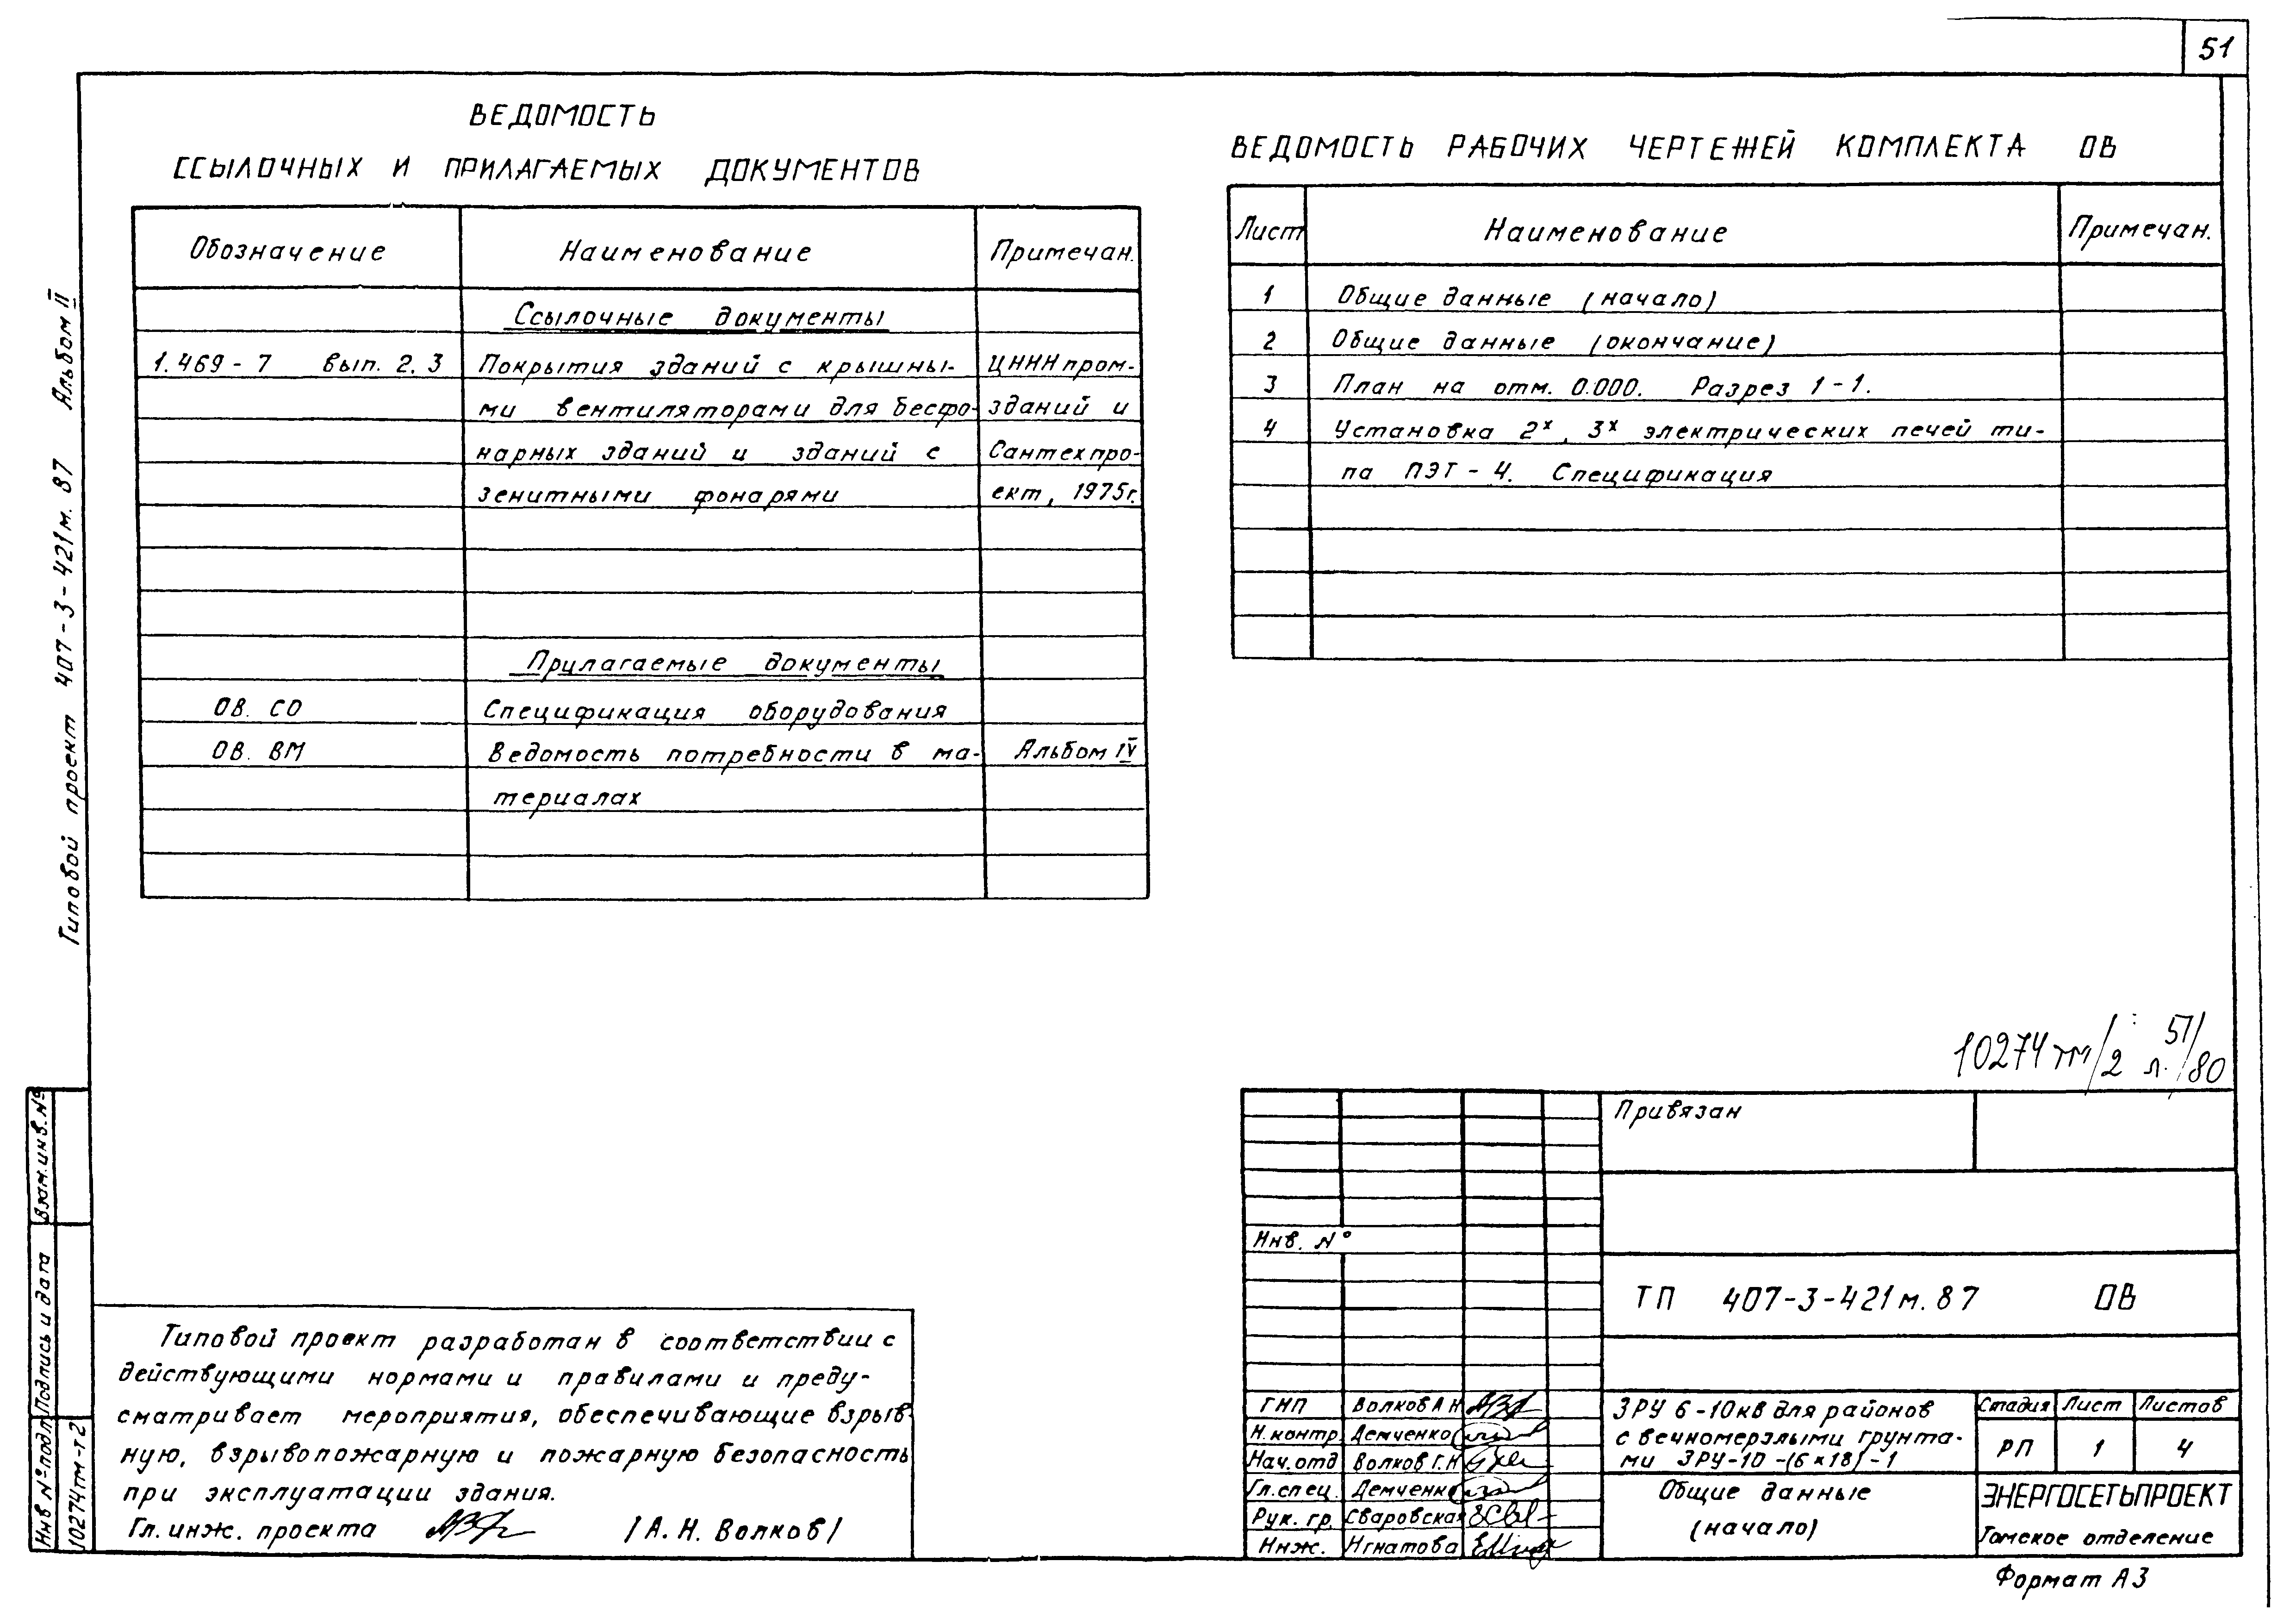 51
ВЕДОМОСТЬ
ССЫЛОЧНЫХ И ПРИЛАГАЕМЫХ ДОКУМЕНТОВ
Обозначение Наименование Примечан.
Ссылочные документы
1.469-7 вып. 2.3 Покрытия зданий с крышны- ЦНИИпром-
ми вентиляторами для бесфо- зданий и
нарных зданий и зданий с Сантехпро-
зенитными фонарями ект, 1975г.
Прилагаемые документы
ОВ. СО Спецификация оборудования
ОВ. ВМ Ведомость потребности в ма- Альбом IV
териалах
ВЕДОМОСТЬ РАБОЧИХ ЧЕРТЕЖЕЙ КОМПЛЕКТА ОВ
Лист Наименование Примечан.
1 Общие данные (начало)
2 Общие данные (окончание)
3 План на отм. 0.000. Разрез 1-1.
4 Установка 2х, 3х электрических печей ти-
па ПЭТ-4. Спецификация
Типовой проект 407-3-421м.87 Альбом II
Взам.инв.№
Подпись и дата
Инв №подл
10274тм-т2
Типовой проект разработан в соответствии с
действующими нормами и правилами и преду-
сматривает мероприятия, обеспечивающие взрыв-
ную, взрывопожарную и пожарную безопасность
при эксплуатации здания.
Гл. инж. проекта /А. Н. Волков/
10274тм/2 л. 51/80
Привязан
Инв. №
ТП 407-3-421м.87 ОВ
ГИП Волков А Н
Н.контр. Демченко
Нач.отд Волков Г.Н
Гл.спец. Демченко
Рук. гр. Сваровская
Инж. Игнатова
ЗРУ 6-10кв для районов
с вечномерзлыми грунта-
ми ЗРУ-10-(6х18)-1
Стадия Лист Листов
РП 1 4
Общие данные
(начало)
ЭНЕРГОСЕТЬПРОЕКТ
Томское отделение
Формат А3